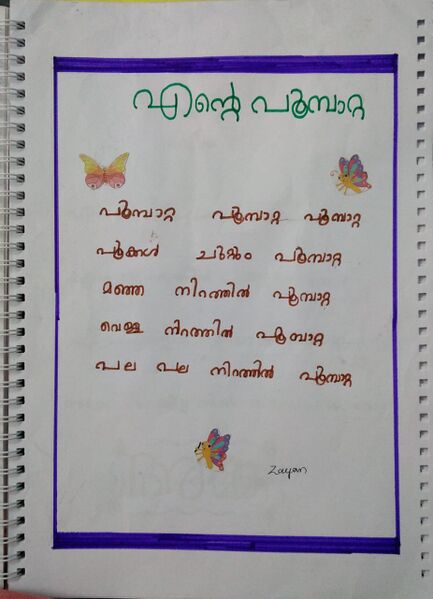 എന്റെ പൂമ്പാറ്റ
പൂമ്പാറ്റ പൂമ്പാറ്റ പൂമ്പാറ്റ
പൂക്കൾ ചുറ്റും പൂമ്പാറ്റ
മഞ്ഞ നിറത്തിൽ പൂമ്പാറ്റ
വെള്ള നിറത്തിൽ പൂമ്പാറ്റ
പല പല നിറത്തിൽ പൂമ്പാറ്റ
Zayan